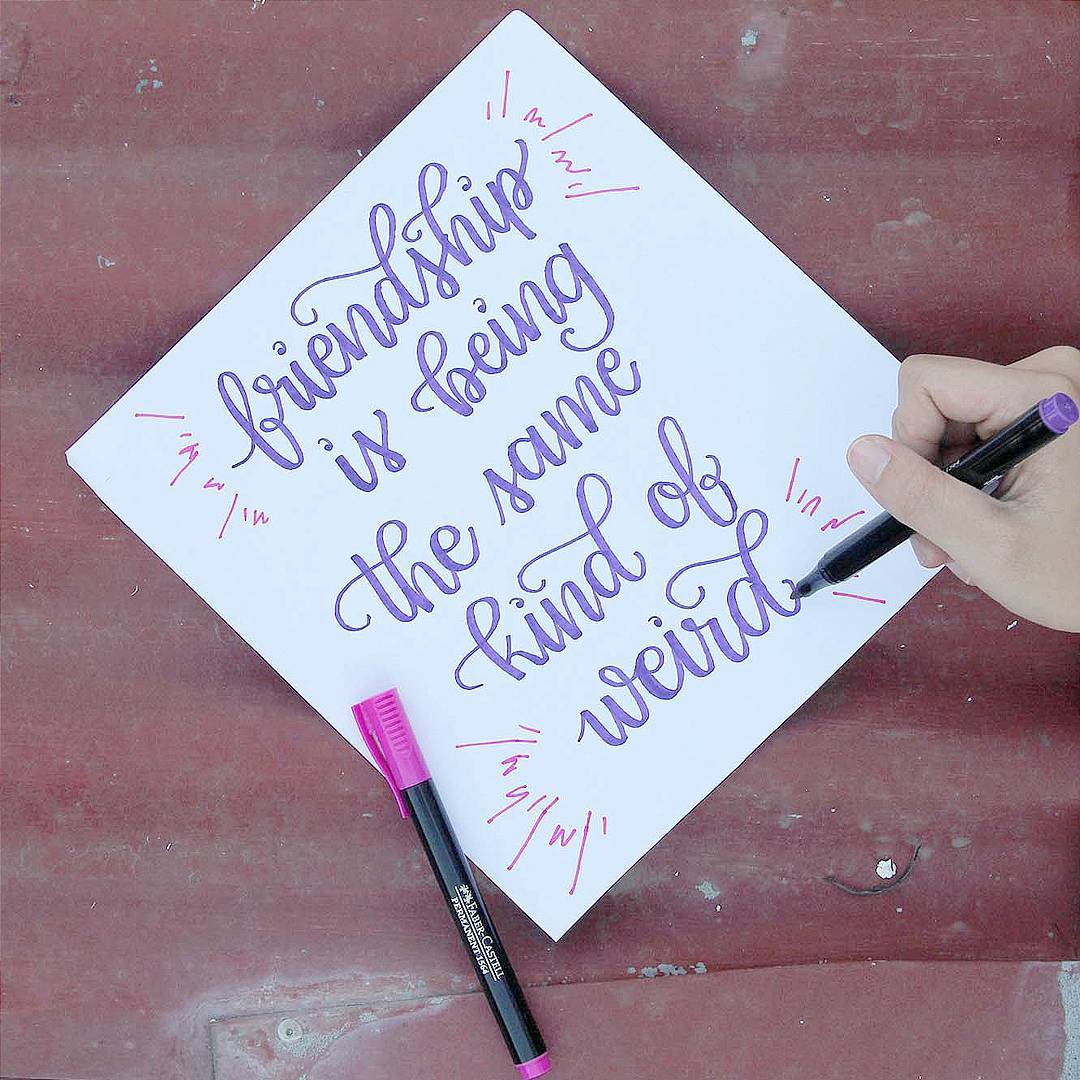 friendship
is being
the same
kind of
weird
FABER-CASTELL
PERMANENT 1564